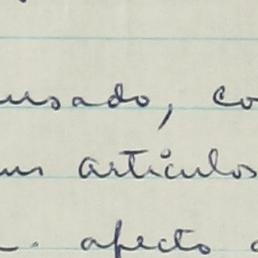 usado, co
artículos
afecto